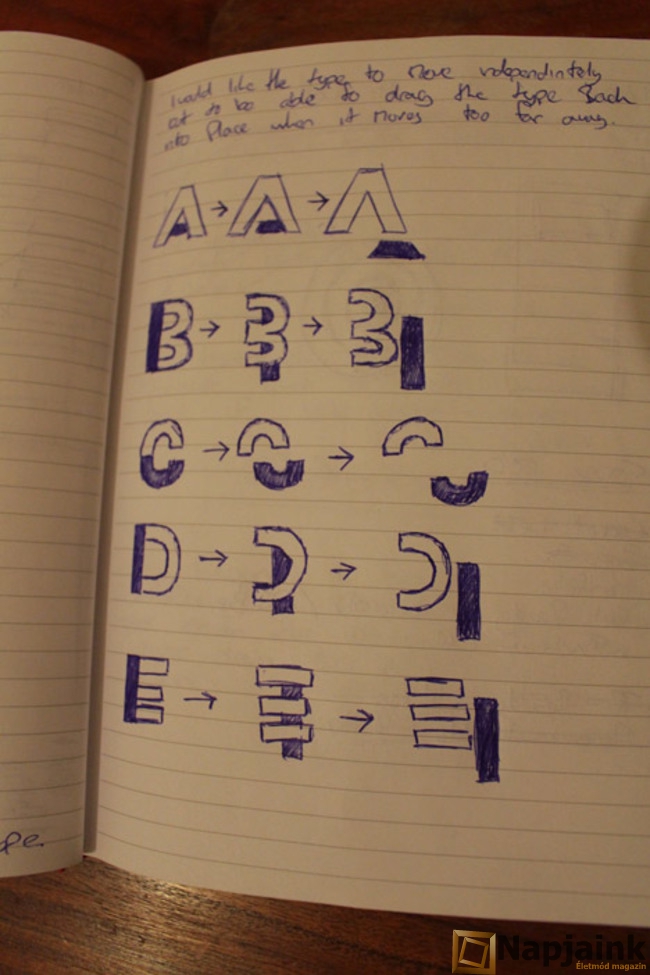 I would like the type to move independintely
at to be able to drag the type back
into place when it moves too far away.
A → A → A
B → B → B
C → C → C
D → D → D
E → E → E
pe.
Napjaink
Életmód magazin